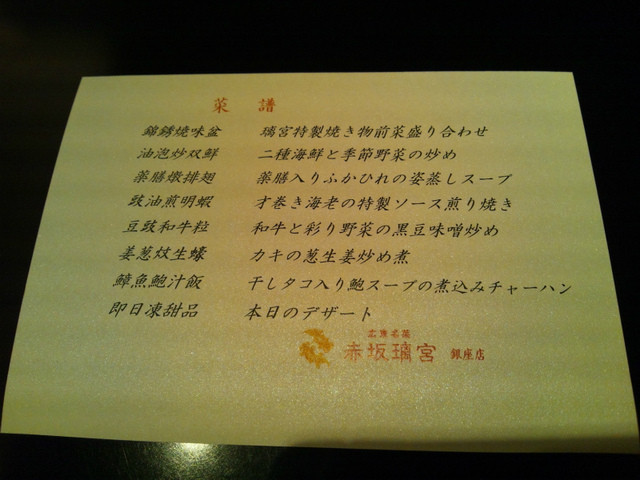 菜譜
錦銹燒味盆 璃宮特製焼き物前菜盛り合わせ
油泡炒双鮮 二種海鮮と季節野菜の炒め
薬膳燉排翅 薬膳入りふかひれの姿蒸しスープ
豉油煎明蝦 才巻き海老の特製ソース煎り焼き
豆豉和牛粒 和牛と彩り野菜の黒豆味噌炒め
姜葱炆生蠔 カキの葱生姜炒め煮
鱆魚鮑汁飯 干しタコ入り鮑スープの煮込みチャーハン
即日凍甜品 本日のデザート
広東名菜
赤坂璃宮 銀座店